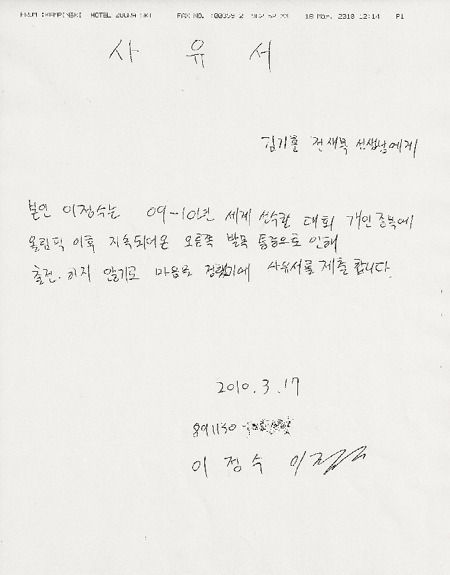 FROM :KEMPINSKI HOTEL ZOGRAFSKI FAX NO. : 18 Mar. 2010 12:14 P1
사 유 서
김기훈 전재목 선생님에게
본인 이정수는 09-10년 세계 선수권 대회 개인 종목에
올림픽 이후 지속되어온 오른쪽 발목 통증으로 인해
출전하지 않기로 마음을 정했기에 사유서를 제출합니다.
2010.3.17
891130-
이 정 수